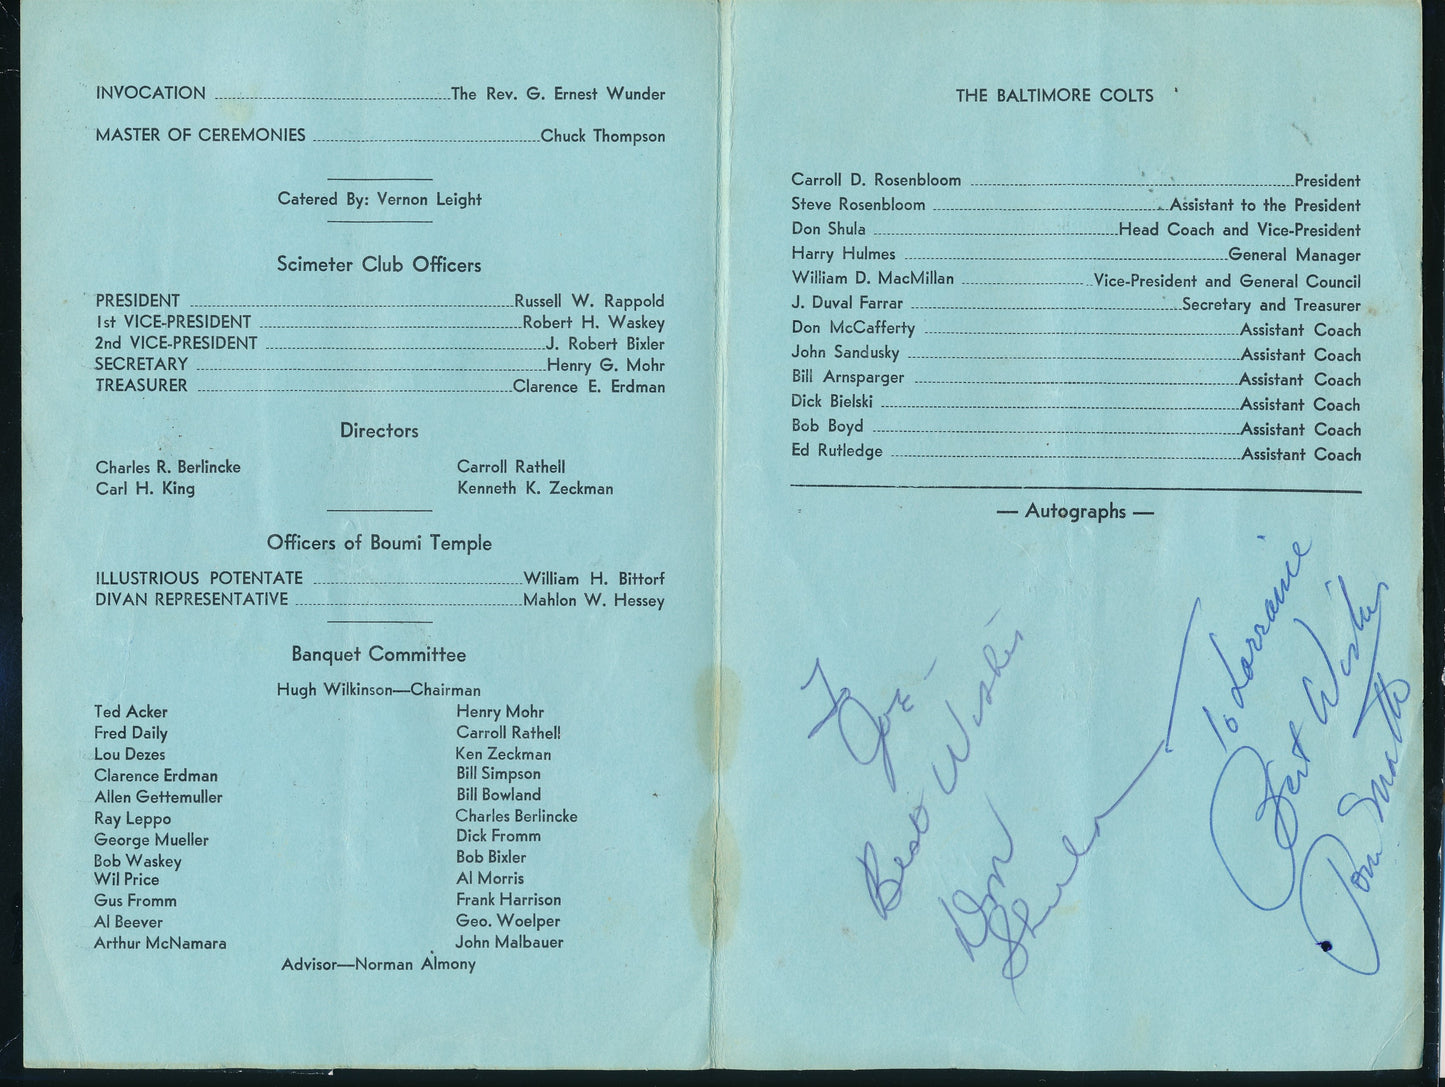 INVOCATION The Rev. G. Ernest Wunder
MASTER OF CEREMONIES Chuck Thompson
Catered By: Vernon Leight
Scimeter Club Officers
PRESIDENT Russell W. Rappold
1st VICE-PRESIDENT Robert H. Waskey
2nd VICE-PRESIDENT J. Robert Bixler
SECRETARY Henry G. Mohr
TREASURER Clarence E. Erdman
Directors
Charles R. Berlincke Carroll Rathell
Carl H. King Kenneth K. Zeckman
Officers of Boumi Temple
ILLUSTRIOUS POTENTATE William H. Bittorf
DIVAN REPRESENTATIVE Mahlon W. Hessey
Banquet Committee
Hugh Wilkinson—Chairman
Ted Acker Henry Mohr
Fred Daily Carroll Rathell
Lou Dezes Ken Zeckman
Clarence Erdman Bill Simpson
Allen Gettemuller Bill Bowland
Ray Leppo Charles Berlincke
George Mueller Dick Fromm
Bob Waskey Bob Bixler
Wil Price Al Morris
Gus Fromm Frank Harrison
Al Beever Geo. Woelper
Arthur McNamara John Malbauer
Advisor—Norman Almony
THE BALTIMORE COLTS
Carroll D. Rosenbloom President
Steve Rosenbloom Assistant to the President
Don Shula Head Coach and Vice-President
Harry Hulmes General Manager
William D. MacMillan Vice-President and General Council
J. Duval Farrar Secretary and Treasurer
Don McCafferty Assistant Coach
John Sandusky Assistant Coach
Bill Arnsparger Assistant Coach
Dick Bielski Assistant Coach
Bob Boyd Assistant Coach
Ed Rutledge Assistant Coach
— Autographs —
To
Joe -
Best Wishes
Don
Shula
To Lorraine
Best Wishes
Tom Matte